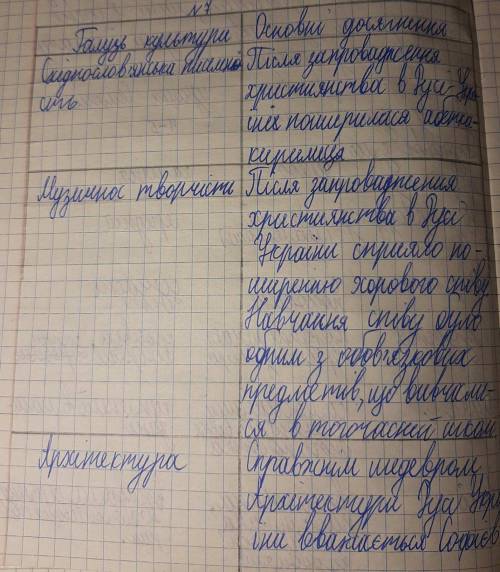 №7
Галузь культури
Основні досягнення
Східнослов'янська писемн
сть
Після запровадження
християнства в Русі Укра
їні поширилася абетка-
кирилиця
Музичнос творчість
Після запровадження
християнства в Русі
Україні сприяло по-
ширенню хорового співу
Навчання співу було
одним з обов'язкових
предметів, що вивчали-
ся в тогочасній школі
Архітектура
Справжнім шедевром
Архітектури Русі Укра
їни вважається Софієв